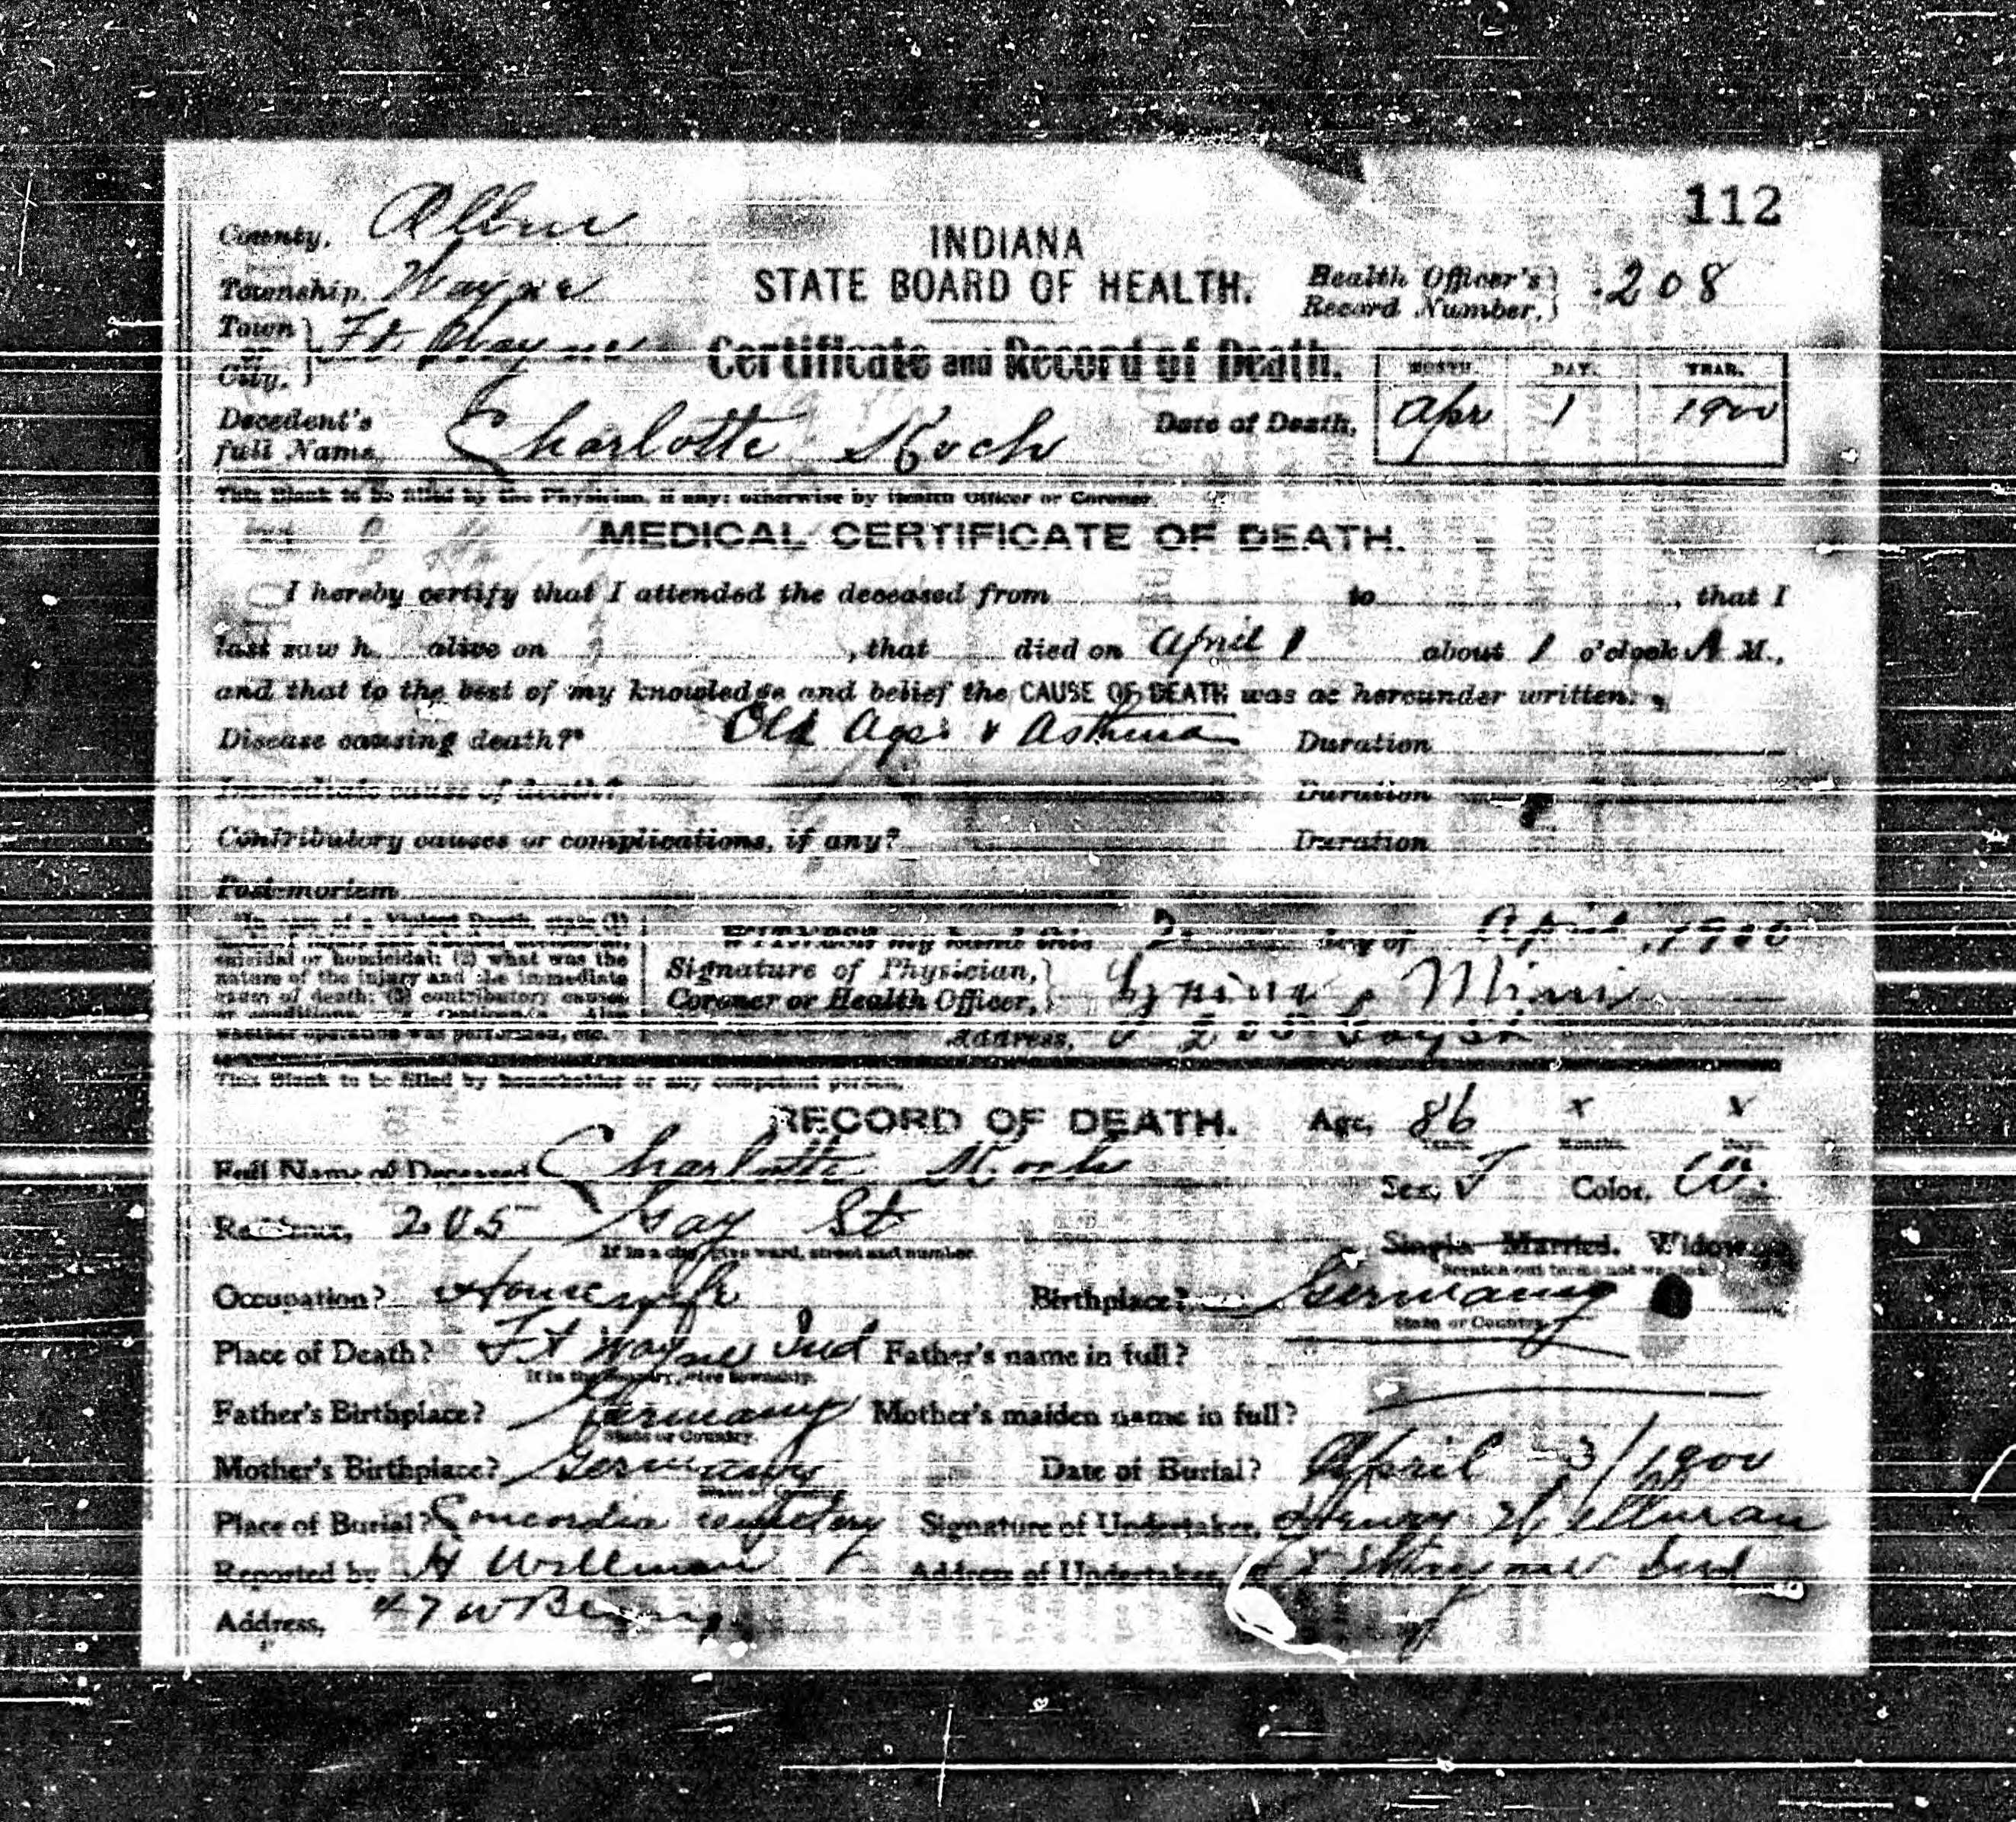 112
County, Allen
INDIANA
Township, Wayne
STATE BOARD OF HEALTH.
Health Officer's Record Number, 208
Town or City, Ft Wayne
Certificate and Record of Death.
MONTH. DAY. YEAR.
Decedent's full Name, Charlotte Koch
Date of Death, Apr 1 1900
This Blank to be filled by the Physician, if any; otherwise by Health Officer or Coroner.
MEDICAL CERTIFICATE OF DEATH.
I hereby certify that I attended the deceased from to , that I
last saw h alive on , that died on April 1 about 1 o'clock A M.,
and that to the best of my knowledge and belief the CAUSE OF DEATH was as hereunder written.
Disease causing death?* Old Age & Asthma Duration
Immediate cause of death? Duration
Contributory causes or complications, if any? Duration
Post-mortem
*In case of a Violent Death, state (1)
suicidal or homicidal; (2) what was the
nature of the injury and the immediate
cause of death; (3) contributory causes
or conditions,
whether operation was performed, etc.
WITNESS my hand this 2 day of April, 1900
Signature of Physician, Coroner or Health Officer,
Address, 205 Gay St
This Blank to be filled by householder or any competent person.
RECORD OF DEATH. Age, 86 x x
Years. Months. Days.
Full Name of Deceased Charlotte Koch
Sex, F Color, W.
Residence, 205 Gay St
If in a city, give ward, street and number.
Single. Married. Widow
Scratch out terms not wanted.
Occupation? Housewife Birthplace? Germany
State or Country.
Place of Death? Ft Wayne Ind Father's name in full?
If in the Country, give township.
Father's Birthplace? Germany Mother's maiden name in full?
State or Country.
Mother's Birthplace? Germany Date of Burial? April 3/1900
Place of Burial? Concordia cemetery Signature of Undertaker, Henry
Reported by H Willman Address of Undertaker, Ft Wayne Ind
Address, 47 W